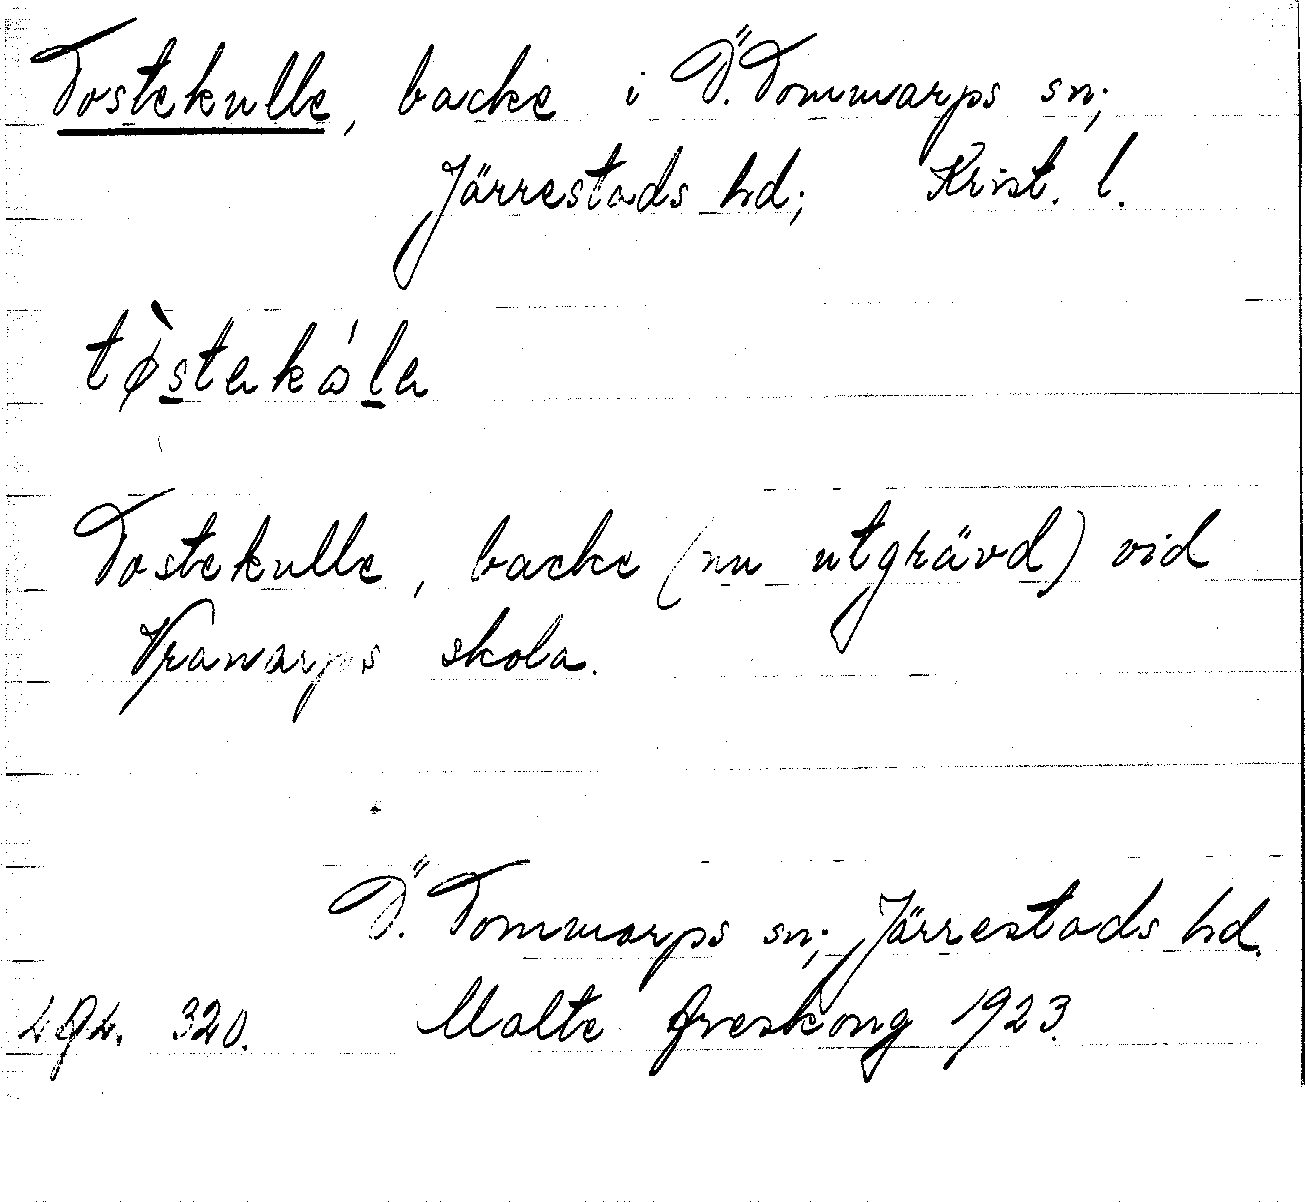 Tostekulle, backe i Ö. Tommarps sn;
Järrestads hd; Krist. l.
tø̀stakúla
Tostekulle, backe (nu utgrävd) vid
Vranarps skola.
Ö. Tommarps sn; Järrestads hd.
320. Malte Areskong 1923.